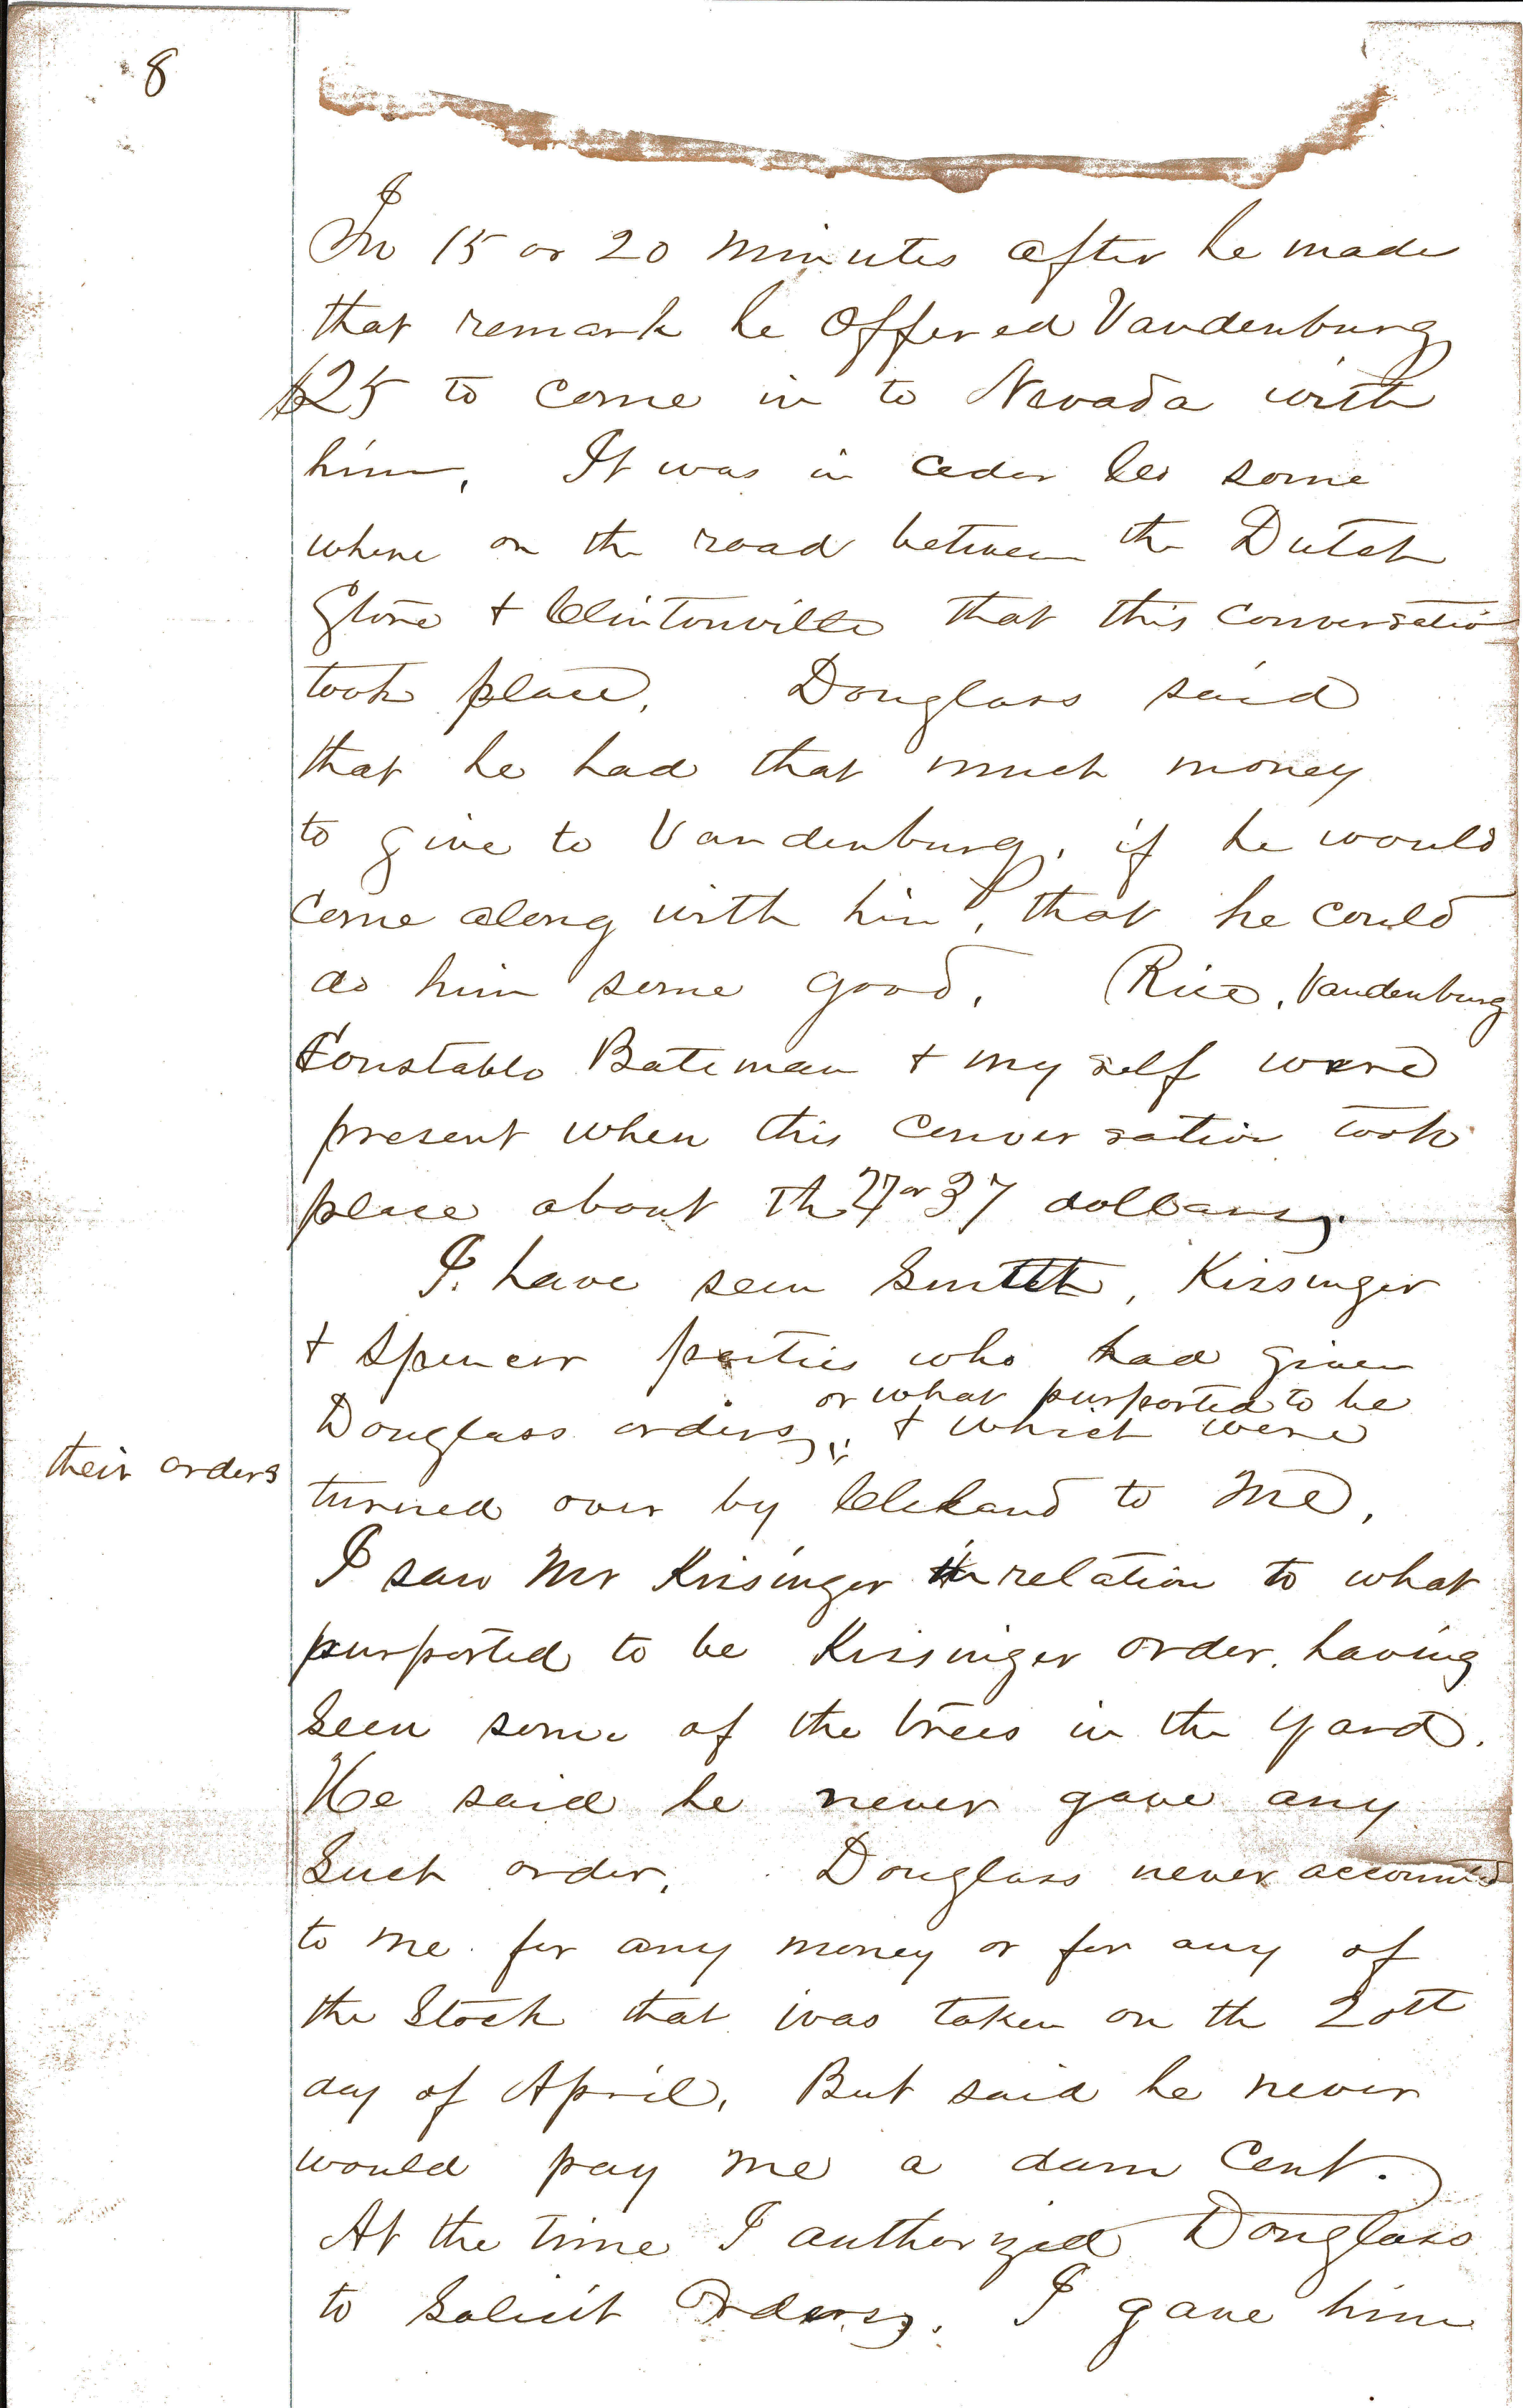 8
In 15 or 20 minutes after he made
that remark he offered Vandenburg
$25 to come in to Nevada with
him. It was in Ceder Co some
where on the road between the Dutch
Store + Clintonville that this conversatio
took place. Douglass said
that he had that much money
to give to Vandenburg, if he would
come along with him, that he could
do him some good. Rice, Vandenburg
Constable Bateman + my self were
present when this conversation took
place about the 27 or 37 dollars.
I have seen Smith, Kissinger
+ Spencer parties who had given
or what purported to be
Douglass orders, + which were
their orders
turned over by Cleland to me.
I saw Mr Kissinger in relation to what
purported to be Kissinger order, having
seen some of the trees in the yard.
He said he never gave any
such order. Douglass never accounted
to me for any money or for any of
the stock that was taken on the 20th
day of April. But said he never
would pay me a dam cent.
At the time I authorized Douglass
to solicit orders. I gave him